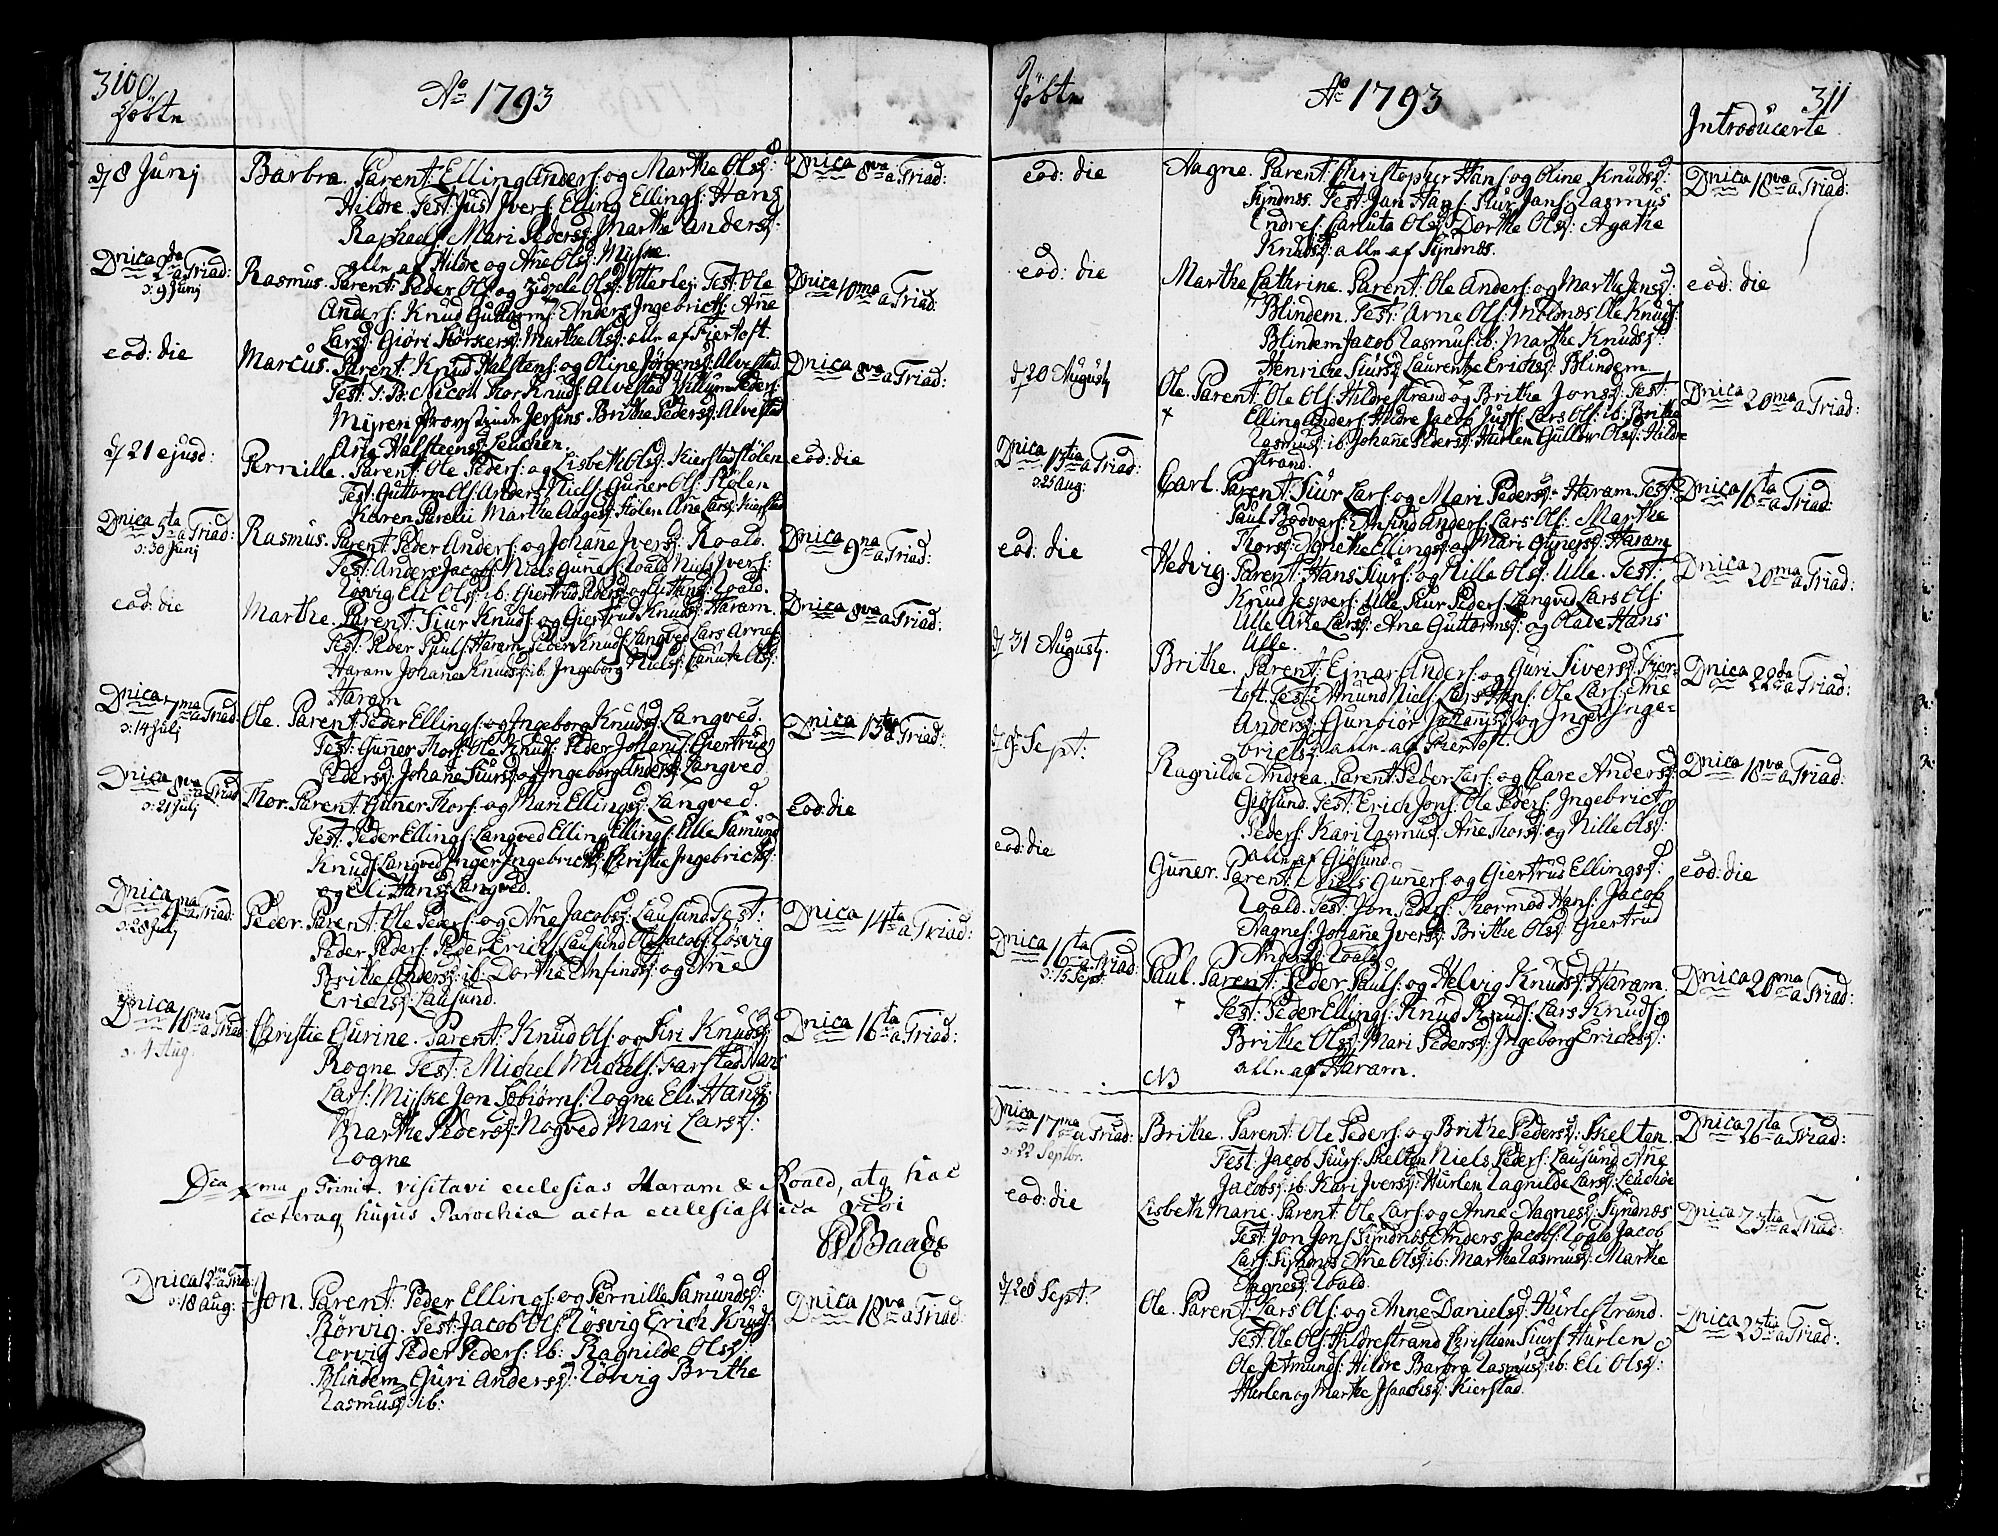 310
Döbte
Ao 1793
d 8 Junj
Barbra. Parent: Elling Anders: og Marthe Olsd:
Hildre. Test: Just Ivers: Elling Ellings: Hans
Raphaels: Mari Pedersd: Marthe Andersd:
alle af Hildre og Ane Olsd: Myske.
Dnica 8va a Triad:
Dnica 2da a Triad:
ɔ: 9 Junj
Rasmus. Parent: Peder Ols: og Olsd: Otterlej. Test: Ole
Anders: Knud Guttorms: Anders Ingebricts: Ane
Larsd: Giøri Marthe Olsd: alle af Fiertoft.
Dnica 10ma a Triad:
eod: die
Marcus. Parent: Knud Halstens: og Oline Jørgensd: Alvestad
Test: S. B: Nicol: Thor Knuds: Alvestad Villum Peders:
Myren Jersins Brithe Pedersd: Alvestad
Halsteensd: Leuchen
Dnica 8va a Triad:
d 21 ejusd:
Pernille. Parent: Ole Peders: og Lisbeth Olsd: Kierstadstølen
Test: Guttorm Ols: Anders Niels: Guner Ols: Stølen
Karen Marthe Aagesd: Stølen Ane Larsd: Kierstad
eod: die
Dnica 5ta a Triad:
ɔ: 30 Junj
Rasmus. Parent: Peder Anders: og Johane Iversd: Roald.
Test: Anders Jacobs: Niels Guners: Roald Niels Ivers:
Rørvig Eli Olsd: ib: Giertrud Pedersd: og Eli Hansd: Roald.
Dnica 9na a Triad:
eod: die
Marthe. Parent: Siur Knuds: og Giertrud Knudsd: Haram.
Test: Peder Pauls: Haram Peder Knuds: Langved Lars Arnes:
Haram Johane Knudsd: ib. Ingeborg Nielsd: Canute Olsd:
Haram
Dnica 8va a Triad:
Dnica 7ma a Triad:
ɔ: 14 Julj
Ole. Parent: Peder Ellings: og Ingeborg Knudsd: Langved.
Test: Guner Thors: Ole Knuds: Peder Johans: Giertrud
Pedersd: Johane Siursd: og Ingeborg Andersd: Langved
Dnica 13tia a Triad:
Dnica 8va a Triad:
ɔ: 21 Julj
Thor. Parent: Guner Thors: og Mari Ellingsd: Langved.
Test: Peder Ellings: Langved Elling Ellings: Ulle Samund
Knuds: Langved Inger Ingebrictsd: Christie Ingebrictsd:
og Eli Hansd: Langved.
eod: die
Dnica 9na a Triad:
ɔ: 28 Julj
Peder. Parent: Ole Peders: og Ane Jacobsd: Lausund Test:
Peder Peders: Peder Erichs: Lausund Ole Jacobs: Røsvig
Brithe Andersd: ib: Dorthe Ansindsd: og Ane
Erichsd: Lausund.
Dnica 14ta a Triad:
Dnica 10ma a Triad:
ɔ: 4 Aug.
Christie Gurine. Parent: Knud Ols: og Siri Knudsd:
Rogne Test: Michel Michels: Farstad Hans
Lars: Myske Jon Rogne Eli Hansd:
Marthe Pedersd: Nogved Mari Larsd:
Rogne
Dnica 16ta a Triad:
Dca xma p Trinit. visitavi ecclesias Haram & Roald, atq hac
cæteraq hujus Parochiæ acta ecclesiastica vidi
Dnica 12ma a Triad:
ɔ: 18 Aug:
Jon. Parent: Peder Ellings: og Pernille Samundsd:
Rørvig. Test: Jacob Ols: Røsvig Erich Knuds:
Rørvig Peder Peders: ib: Ragnilde Olsd:
Blindem Guri Andersd: Rørvig Brithe
Rasmusd: ib:
Dnica 18va a Triad:
Döbte
Ao 1793
311
Introducerte
eod: die
Aagne. Parent: Christopher Hans: og Oline Knudsd:
Syndnes. Test: Jan Hans: Siur Jans: Rasmus
Endres: Carluta Olsd: Dorthe Olsd: Agathe
Knudsd: alle af Synnes.
Dnica 18va a Triad:
eod: die
Marthe Cathrine. Parent: Ole Anders: og Marthe Jensd:
Blindem. Test: Arne Ols: Ole Knuds:
Blindem Jacob Rasmus: ib. Marthe Knudsd:
Henriche Siursd: Laurentze Erichsd: Blindem
eod: die
d 20 Augustj
Ole. Parent: Ole Ols: Hildrestrand og Brithe Jonsd: Test:
Elling Anders: Hildre Jacob Justs: Lars Ols: ib: Brithe
Rasmusd: ib: Johane Pedersd: Hurlen Gullow Olsd: Hildre
strand.
Dnica 20ma a Triad:
Dnica 13tia a Triad:
ɔ: 25 Aug:
Carl. Parent: Siur Lars: og Mari Pedersd: Haram. Test:
Paul Bodvars: Ansind Anders: Lars Ols: Marthe
Thorsd: Ellingsd: og Mari Gunersd: Haram
Dnica 16ta a Triad:
eod: die
Hedvig. Parent: Hans Siurs: og Nille Olsd: Ulle. Test:
Knud Jespers: Ulle Siur Peders: Langved Lars Ols:
Ulle Ane Larsd: Ane Guttormsd: og Olave Hans
Ulle.
Dnica 20ma a Triad:
d 31 Augustj.
Brithe. Parent: Ejnar Anders: og Guri Siversd: Fier-
toft. Test: Amund Niels: Lars Hans: Ole Lars: Ane
Andersd: Gunbiør Johansd: og Ingeb: Inge-
brictsd: alle af Fiertoft.
Dnica 22da a Triad:
d 8 Sept:
Ragnilde Andrea. Parent: Peder Lars: og Clare Andersd:
Giøsund. Test: Erich Jons: Ole Peders: Ingebrict
Peders: Kari Rasmusd: Ane Thorsd: og Nille Olsd:
alle af Giøsund.
Dnica 18va a Triad:
eod: die
Guner. Parent: Niels Guners: og Giertrud Ellingsd:
Roald. Test: Jon Peders: Thormod Hans: Jacob
Aagnes: Johane Iversd: Brithe Olsd: Giertrud
Andersd: Roald.
eod: die
Dnica 16ta a Triad:
ɔ: 15 Sept:
Paul. Parent: Peder Pauls: og Helvig Knudsd: Haram.
Test: Peder Ellings: Knud Knuds: Lars Knuds:
Brithe Olsd: Mari Pedersd: Ingeborg Erichsd:
alle af Haram.
Dnica 20ma a Triad:
NB
Dnica 17ma a Triad:
ɔ: 22 Septbr.
Brithe. Parent: Ole Peders: og Brithe Pedersd: Skelten.
Test: Jacob Siurs: Skelten Niels Peders: Lausund Ane
Jacobsd: ib: Kari Iversd: Hurlen Ragnilde Larsd:
Dnica 26ta a Triad:
eod: die
Lisbeth Marie. Parent: Ole Lars: og Anne Aagnesd: Syndnes
Test: Jon Jons: Syndnes Anders Jacobs: Roald Jacob
Lars: Synnes Ane Olsd: ib: Marthe Rasmusd: Marthe
Aagnesd: Roald.
Dnica 23tia a Triad:
d 28 Sept:
Ole. Parent: Lars Ols: og Anne Danielsd: Hurlestrand.
Test: Ole Ols: Hildrestrand Christian Siurs: Hurlen
Ole Jetmunds: Hildre Barbra Rasmusd: ib: Eli Olsd:
Hurlen og Marthe Isaachsd: Kierstad.
Dnica 23tia a Triad: